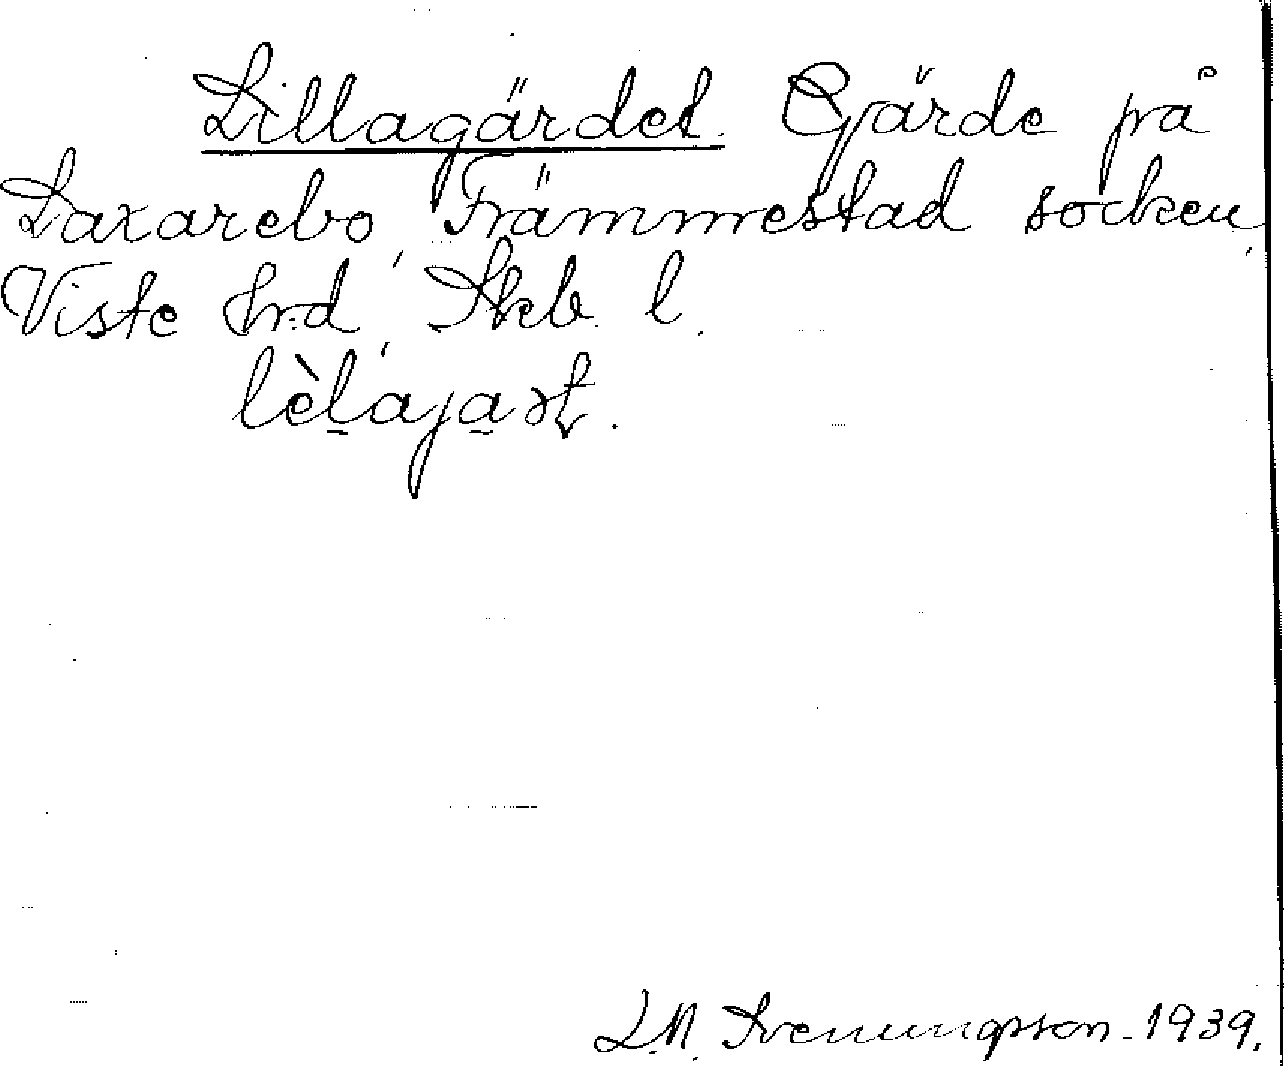 Lillagärdet. Gärde på
Laxarebo, Främmestad socken,
Viste hrd, Skb. l.
lèlajaṣt.
L.N. Svenungsson. 1939.